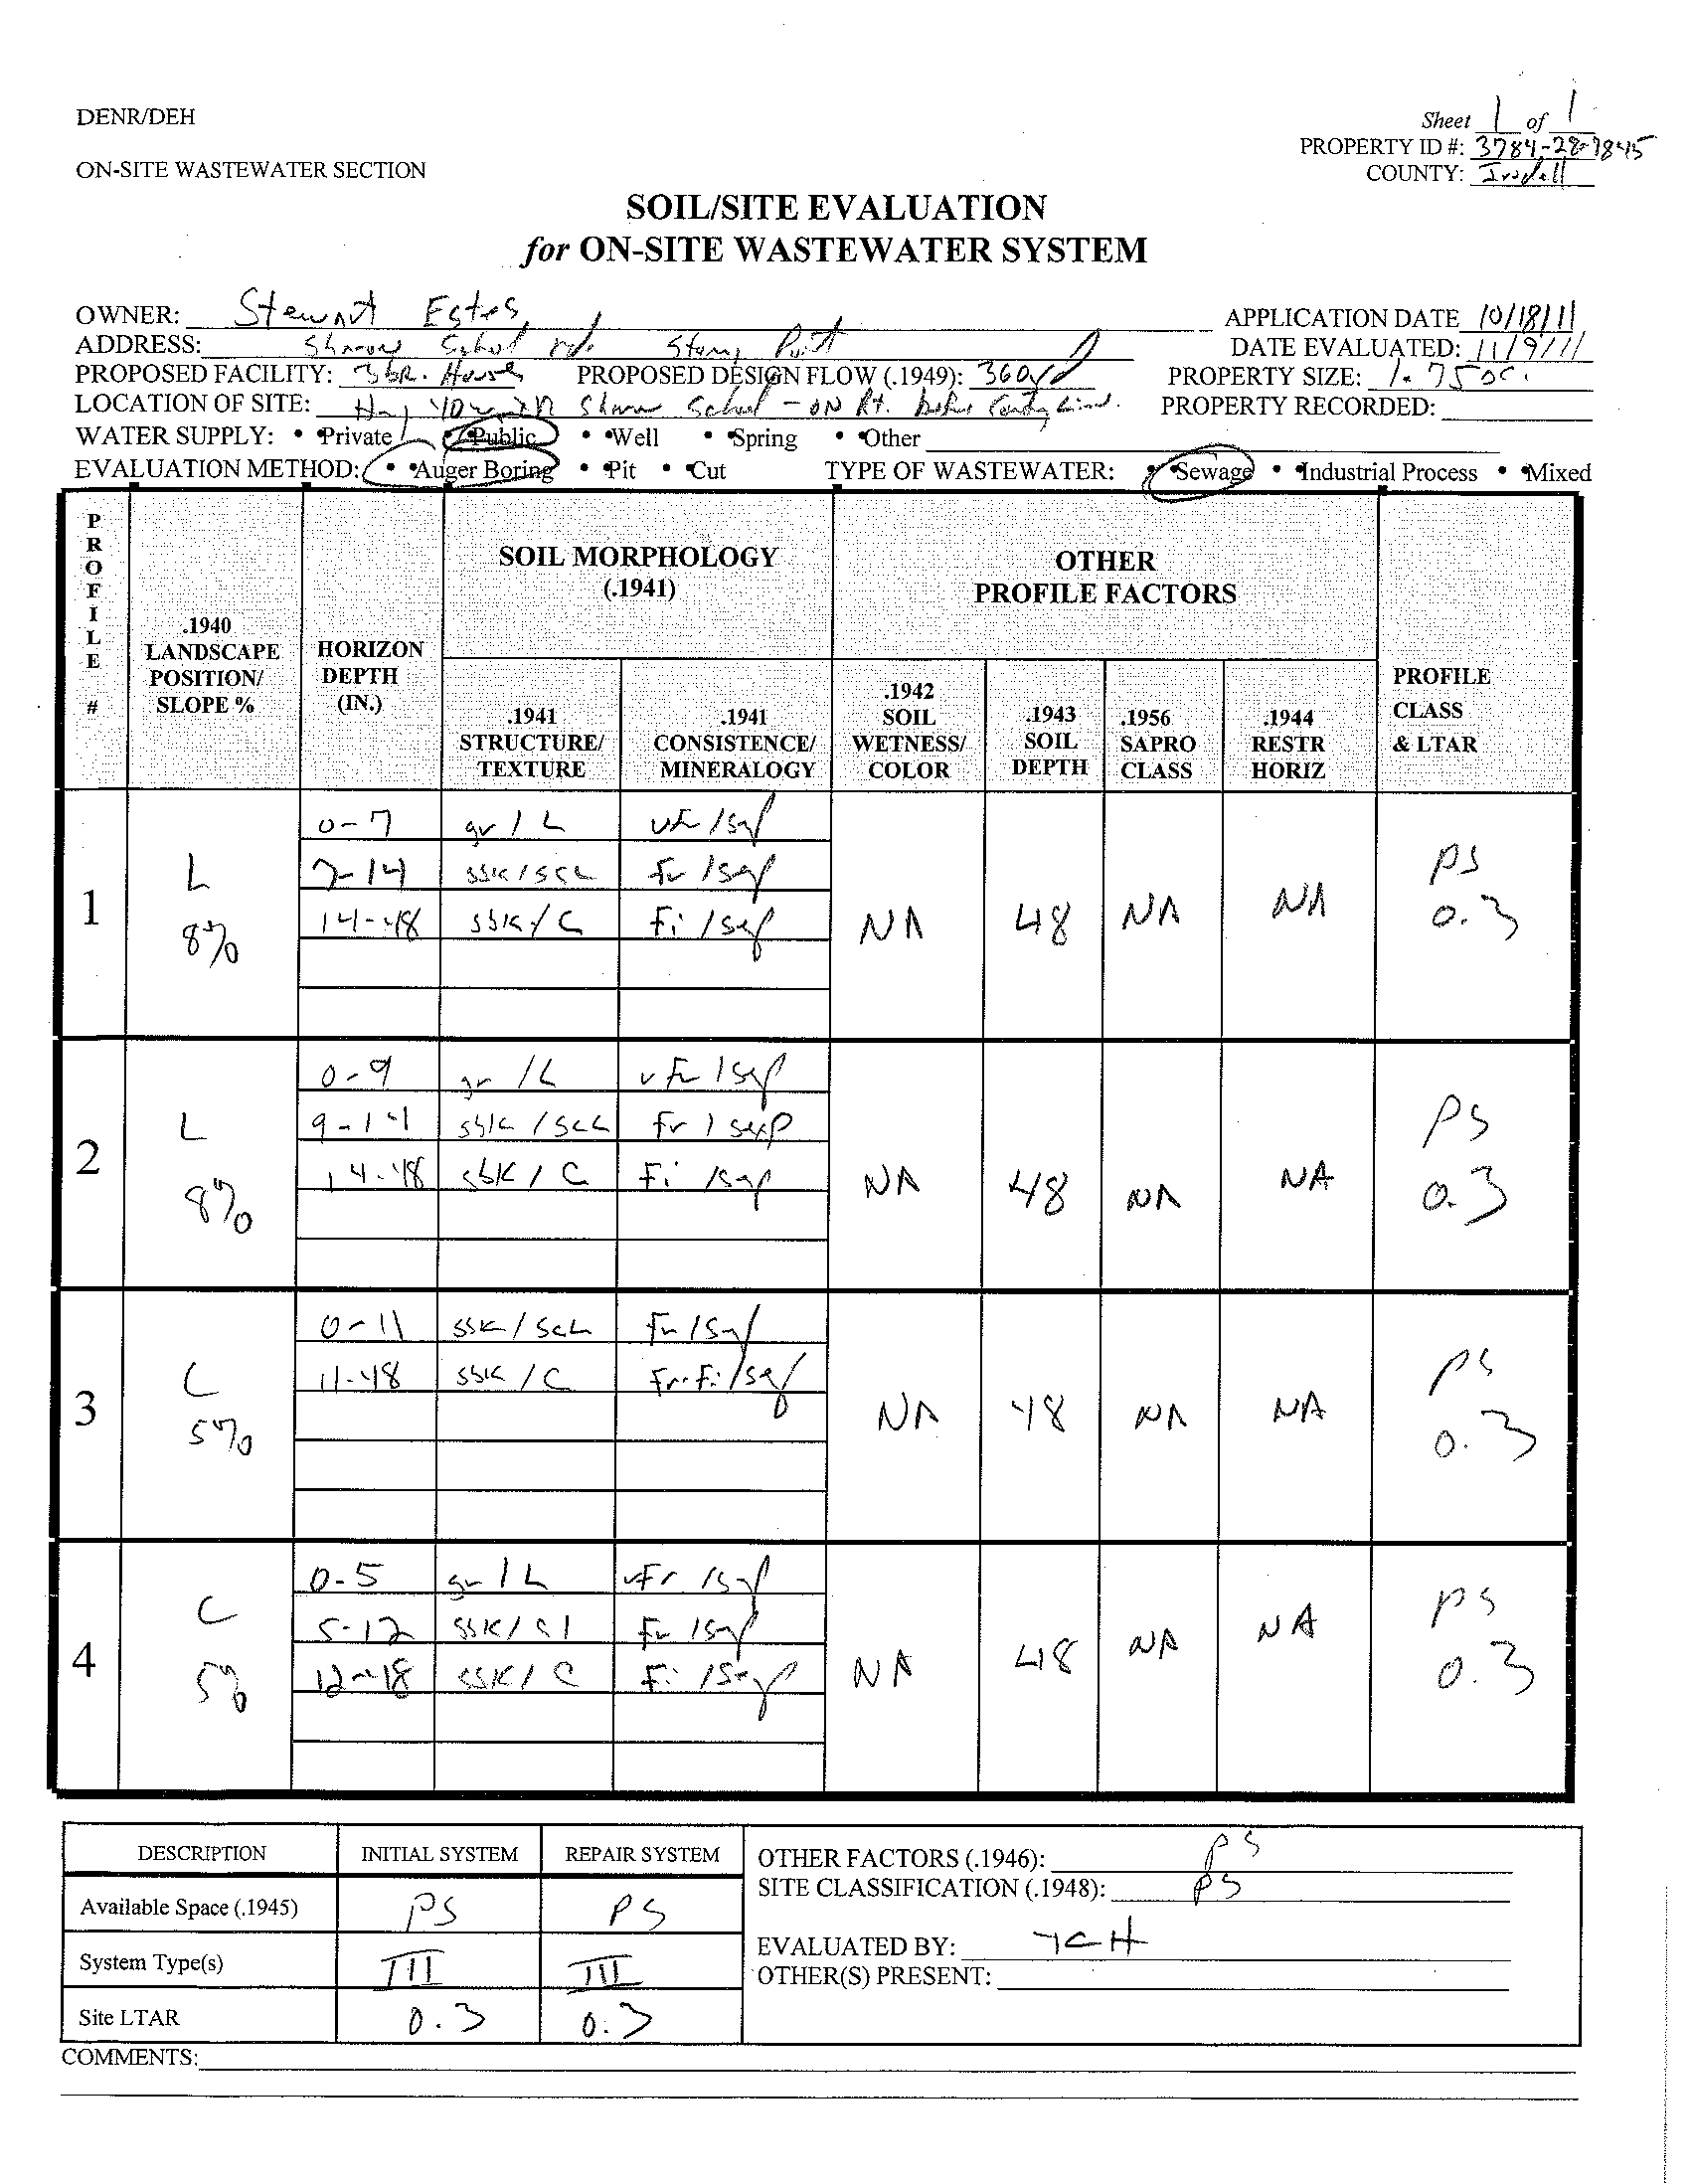 DENR/DEH
Sheet 1 of 1
PROPERTY ID #: 3784-28-7845
ON-SITE WASTEWATER SECTION
COUNTY: Iredell
SOIL/SITE EVALUATION
for ON-SITE WASTEWATER SYSTEM
OWNER: Stewart Estes
APPLICATION DATE 10/18/11
ADDRESS: Sharon School rd. Stony Point
DATE EVALUATED: 11/9/11
PROPOSED FACILITY: 3 BR. House PROPOSED DESIGN FLOW (.1949): 360
PROPERTY SIZE: 1.75 ac.
LOCATION OF SITE: Hwy Sharon School - ON Rt. before County Line.
PROPERTY RECORDED:
WATER SUPPLY: • Private • Public • Well • Spring • Other
EVALUATION METHOD: • Auger Boring • Pit • Cut TYPE OF WASTEWATER: • Sewage • Industrial Process • Mixed
PROFILE #
.1940 LANDSCAPE POSITION/ SLOPE %
HORIZON DEPTH (IN.)
SOIL MORPHOLOGY (.1941)
.1941 STRUCTURE/ TEXTURE
.1941 CONSISTENCE/ MINERALOGY
OTHER PROFILE FACTORS
.1942 SOIL WETNESS/ COLOR
.1943 SOIL DEPTH
.1956 SAPRO CLASS
.1944 RESTR HORIZ
PROFILE CLASS & LTAR
1 L 8%
0-7 gr / L vfr /sexp
7-14 SBK / SCL fr /sexp
14-48 SBK / C fi /sexp
NA 48 NA NA PS 0.3
2 L 8%
0-9 gr / L vfr /sexp
9-14 SBK / SCL fr / sexp
14-48 SBK / C fi /sexp
NA 48 NA NA PS 0.3
3 C 5%
0-11 SBK / SCL fr /sexp
11-48 SBK / C fr-fi /sexp
NA 48 NA NA PS 0.3
4 C 5%
0-5 gr / L vfr /sexp
5-12 SBK / fr /sexp
12-48 SBK / C fi /sexp
NA 48 NA NA PS 0.3
DESCRIPTION INITIAL SYSTEM REPAIR SYSTEM
Available Space (.1945) PS PS
System Type(s) III III
Site LTAR 0.3 0.3
OTHER FACTORS (.1946): PS
SITE CLASSIFICATION (.1948): PS
EVALUATED BY:
OTHER(S) PRESENT:
COMMENTS: